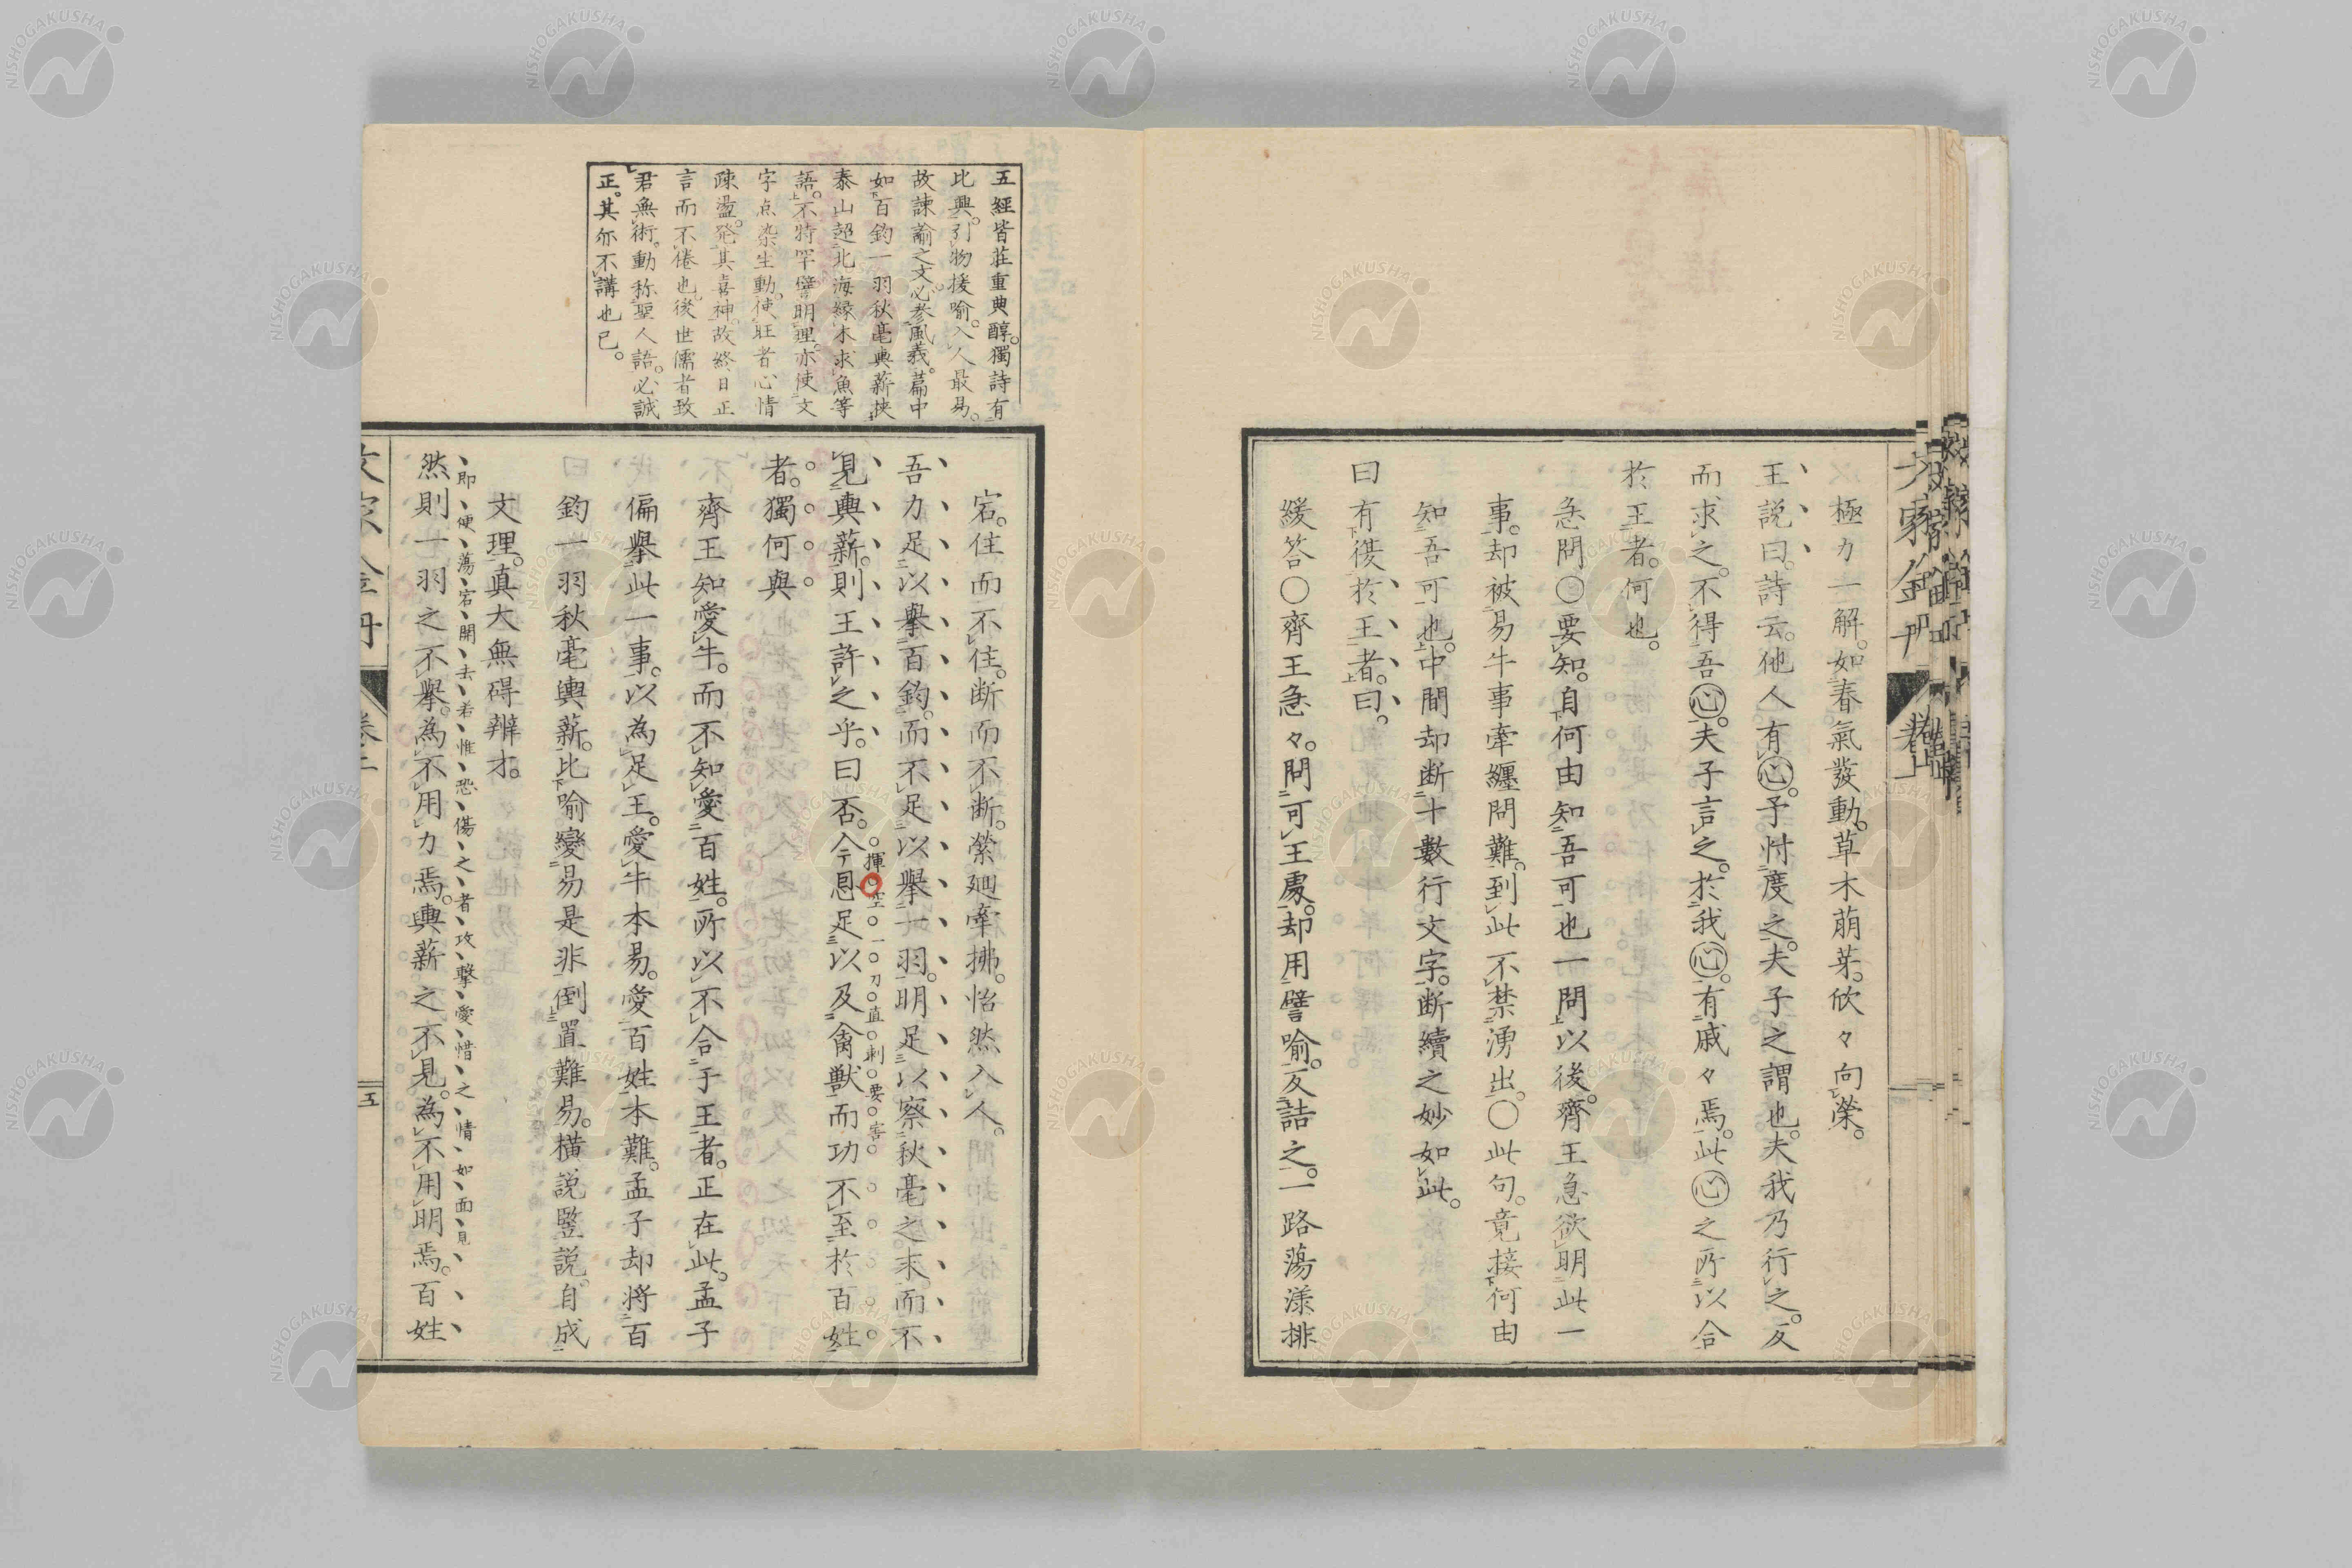 極力一解。如春氣發動。草木萠芽。欣々向榮。
王説曰。詩云。他人有心。予忖度之。夫子之謂也。夫我乃行之。反
而求之。不得吾心。夫子言之。於我心。有戚々焉。此心之所以合
於王者。何也。
急問〇要知。自何由知吾可也一問以後。齊王急欲明此一
事。却被易牛事牽纏問難。到此不禁湧出。〇此句。竟接何由
知吾可也。中間却断十數行文字。断續之妙如此。
曰有復於王者。曰。
緩答〇齊王急々。問可王處。却用譬喻。反詰之。一路蕩漾排
宕。住而不住。断而不断。縈廻牽拂。怡然入人。
吾力足以擧百鈞。而不足以擧一羽。明足以察秋毫之末。而不
見輿薪。則王許之乎。曰否。今恩足以及禽獸而功不至於百姓
揮空一刀直刺要害
者。獨何與
齊王知愛牛。而不知愛百姓。所以不合于王者。正在此。孟子
偏擧此一事。以為足王。愛牛本易。愛百姓本難。孟子却将百
鈞一羽秋毫輿薪。比喻變易是非倒置難易。横説竪説。自成
文理。真大無碍辨才。
即便蕩宕開去若惟恐傷之者攻擊愛惜之情如面見
然則一羽之不擧。為不用力焉。輿薪之不見。為不用明焉。百姓
五經皆莊重典醇。獨詩有
比興。引物援喻。入人最易。
故諫諭之文。必参風義。篇中
如百鈞一羽秋毫輿薪挟
泰山超北海縁木求魚等
語。不特罕譬明理。亦使文
字点染生動。使旺者心情
疎盪。発其喜神。故終日正
言而不倦也。後世儒者致
君無術。動称聖人語。必誠
正。其亦不講也已。
文家金丹
卷上
五
NISHOGAKUSHA